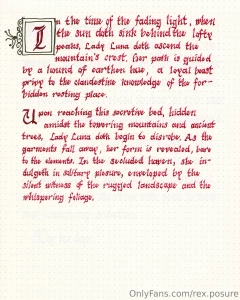 In the time of the fading light, when
the sun doth sink behind the lofty
peaks, Lady Luna doth ascend the
mountain's crest, her path is guided
by a hound of earthen hue, a loyal beast
privy to the clandestine knowledge of the for-
bidden resting place.
Upon reaching this secretive bed, hidden
amidst the towering mountains and ancient
trees, Lady Luna doth begin to disrobe. As the
garments fall away, her form is revealed, bare
to the elements. In the secluded haven, she in-
dulgeth in solitary plesure, enveloped by the
silent witness of the rugged landscape and the
whispering foliage.
OnlyFans.com/rex.posure